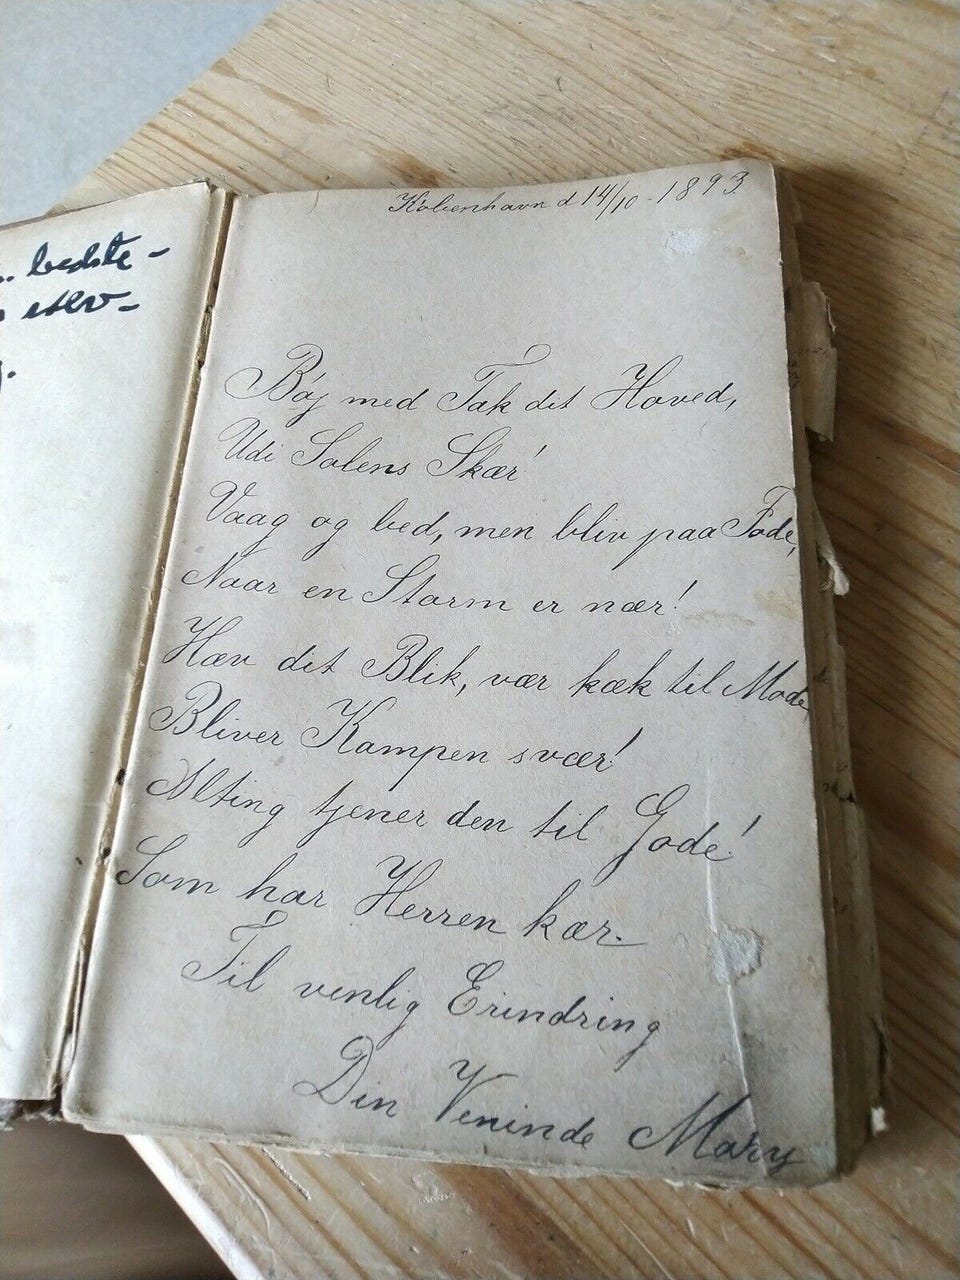 bedste-
København d 14/10 - 1893
Bøj med Tak dit Hoved,
Udi Solens Skær!
Vaag og bed, men bliv paa Fode,
Naar en Storm er nær!
Hæv dit Blik, vær kæk til Mode,
Bliver Kampen svær!
Alting tjener den til Gode!
Som har Herren kær.
Til venlig Erindring
Din Veninde Mary